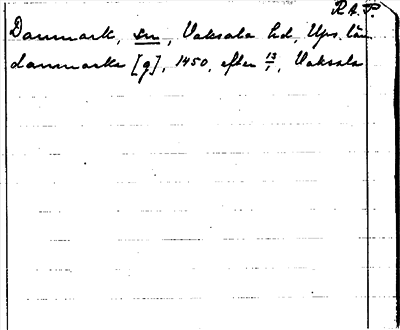 R.A.P.
Danmark, sn, Vaksala hd, Ups. län
danmarks [g], 1450, efter 13/1, Vaksala